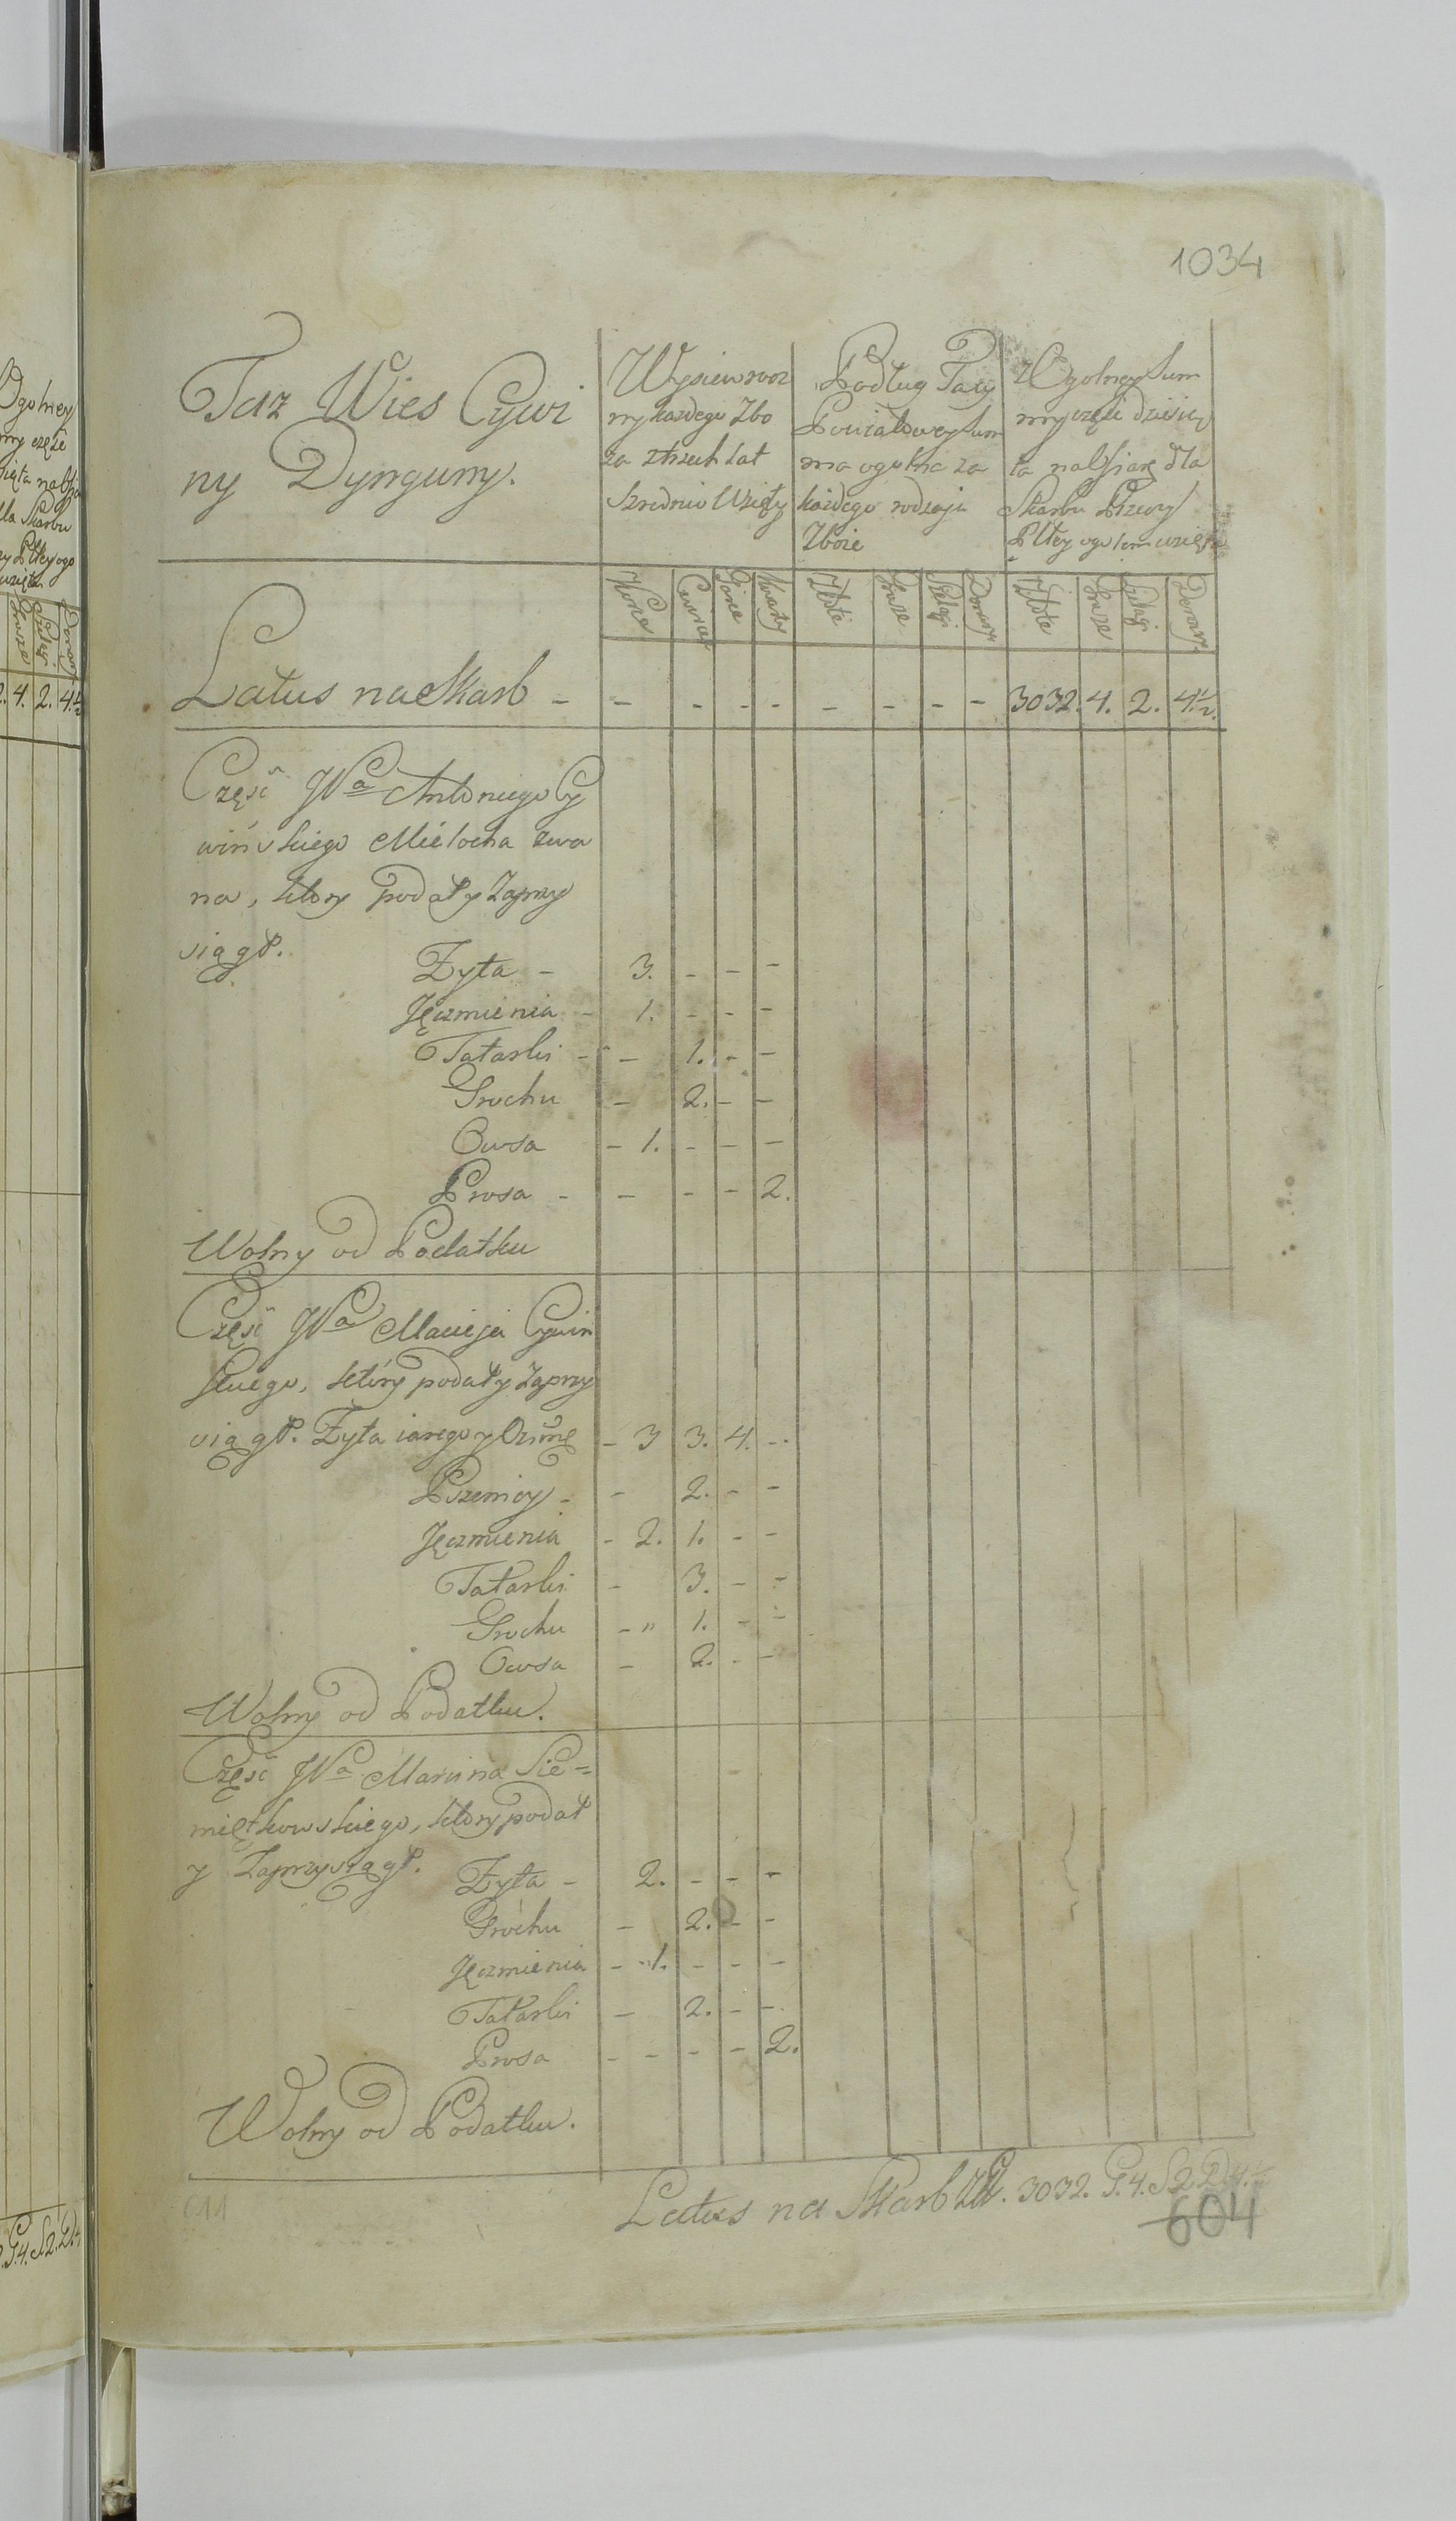 1034
Taz Wies Cywi
ny Dynguny.
Wysiew rocz
ny kazdego Zbo
za ztrzech Lat
Szrednio Wzięty
Podług Taxy
Powiatowey Sum
ma ogolna za
każdego rodzaju
Zboże
Z Ogolney Sum
my częsci dziesią
ta na Ofiarę dla
Skarbu Rzeczy
Pltey ogołem wzięta
Korce Cwierci Garce Kwarty Złote Grosze Szelągi Denary Złote Grosze Szelągi Denary
Latus na Skarb - - - - - - - - - 3032. 4. 2. 4 1/2.
Część JPa Antoniego Cy
wińskiego Mielocha zwa
na, ktory podał y Zaprzy
siągł.
Zyta - 3. - - -
Jęczmienia - 1. - - -
Tatarki - - 1. - -
Grochu - 2. - -
Owsa - 1. - - -
Prosa - - - - 2.
Wolny od Podatku
Część JPa Macieja Cywin
skiego, ktory podał y Zaprzy
siągł. Zyta iarego y Ozimę - 3 3. 4. -
Pszenicy - - 2. - -
Jęczmienia - 2. 1. - -
Tatarki - 3. - -
Grochu - " 1. - -
Owsa - 2. - -
Wolny od Podatku.
Część JPa Marcina Sie=
miętkowskiego, ktory podał
y Zaprzysiągł.
Zyta - 2. - - -
Grochu - 2. - -
Jęczmienia - 1. - - -
Tatarki - 2. - -
Prosa - - - - 2.
Wolny od Podatku.
Latus na Skarb Zł. 3032. G. 4. S 2 D. 4. 1/2
611
604